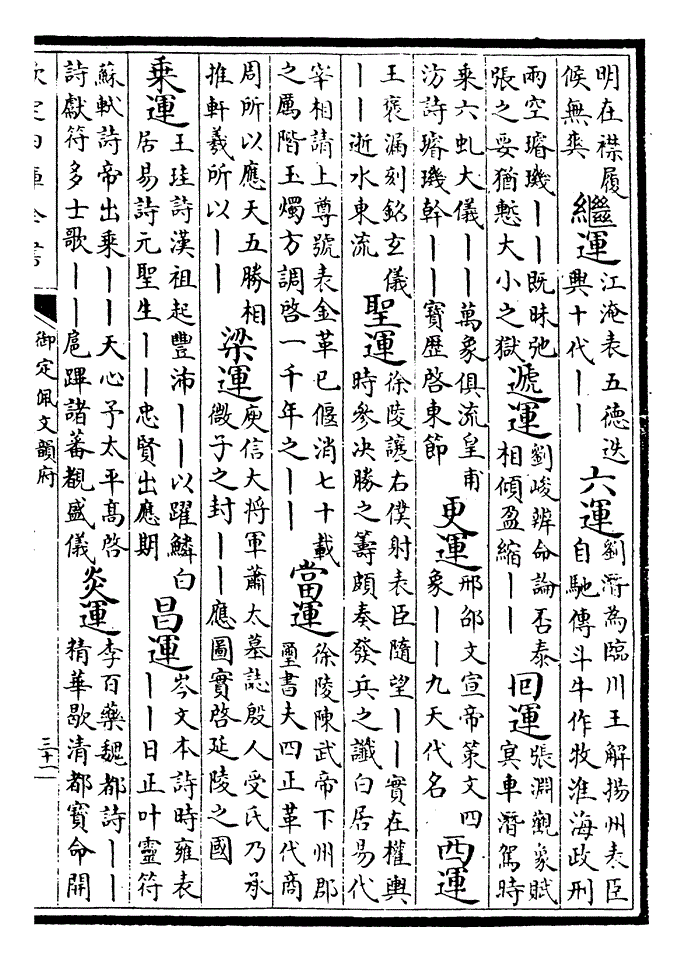 明在襟履
候無爽
繼運
江淹表五德迭
興十代――
六運
劉潛為臨川王解揚州表臣
自馳傳斗牛作牧淮海政刑
兩空璿璣――既昧弛
張之妥猶慙大小之獄
遞運
劉峻辨命論否泰
相傾盈縮――
回運
張淵觀象賦
冥車潛駕時
乘六虬大儀――萬象俱流皇甫
汸詩璿璣幹――寶歷啓東節
更運
邢邵文宣帝策文四
象――九天代名
西運
王褒漏刻銘玄儀
――逝水東流
聖運
徐陵讓右僕射表臣隨望――實在權輿
時參決勝之籌頗奏發兵之讖白居易代
宰相請上尊號表金革已偃消七十載
之厲階玉燭方調啓一千年之――
當運
徐陵陳武帝下州郡
璽書夫四正革代商
周所以應天五勝相
推軒羲所以――
梁運
庾信大將軍蕭太墓誌殷人受氏乃承
微子之封――應圖實啓延陵之國
乘運
王珪詩漢祖起豐沛――以躍鱗白
居易詩元聖生――忠賢出應期
昌運
岑文本詩時雍表
――日正叶靈符
蘇軾詩帝出乘――天心予太平高啓
詩獻符多士歌――扈蹕諸蕃覩盛儀
炎運
李百藥魏都詩――
精華歇清都寶命開
欽定四庫全書
御定佩文韻府
三十一